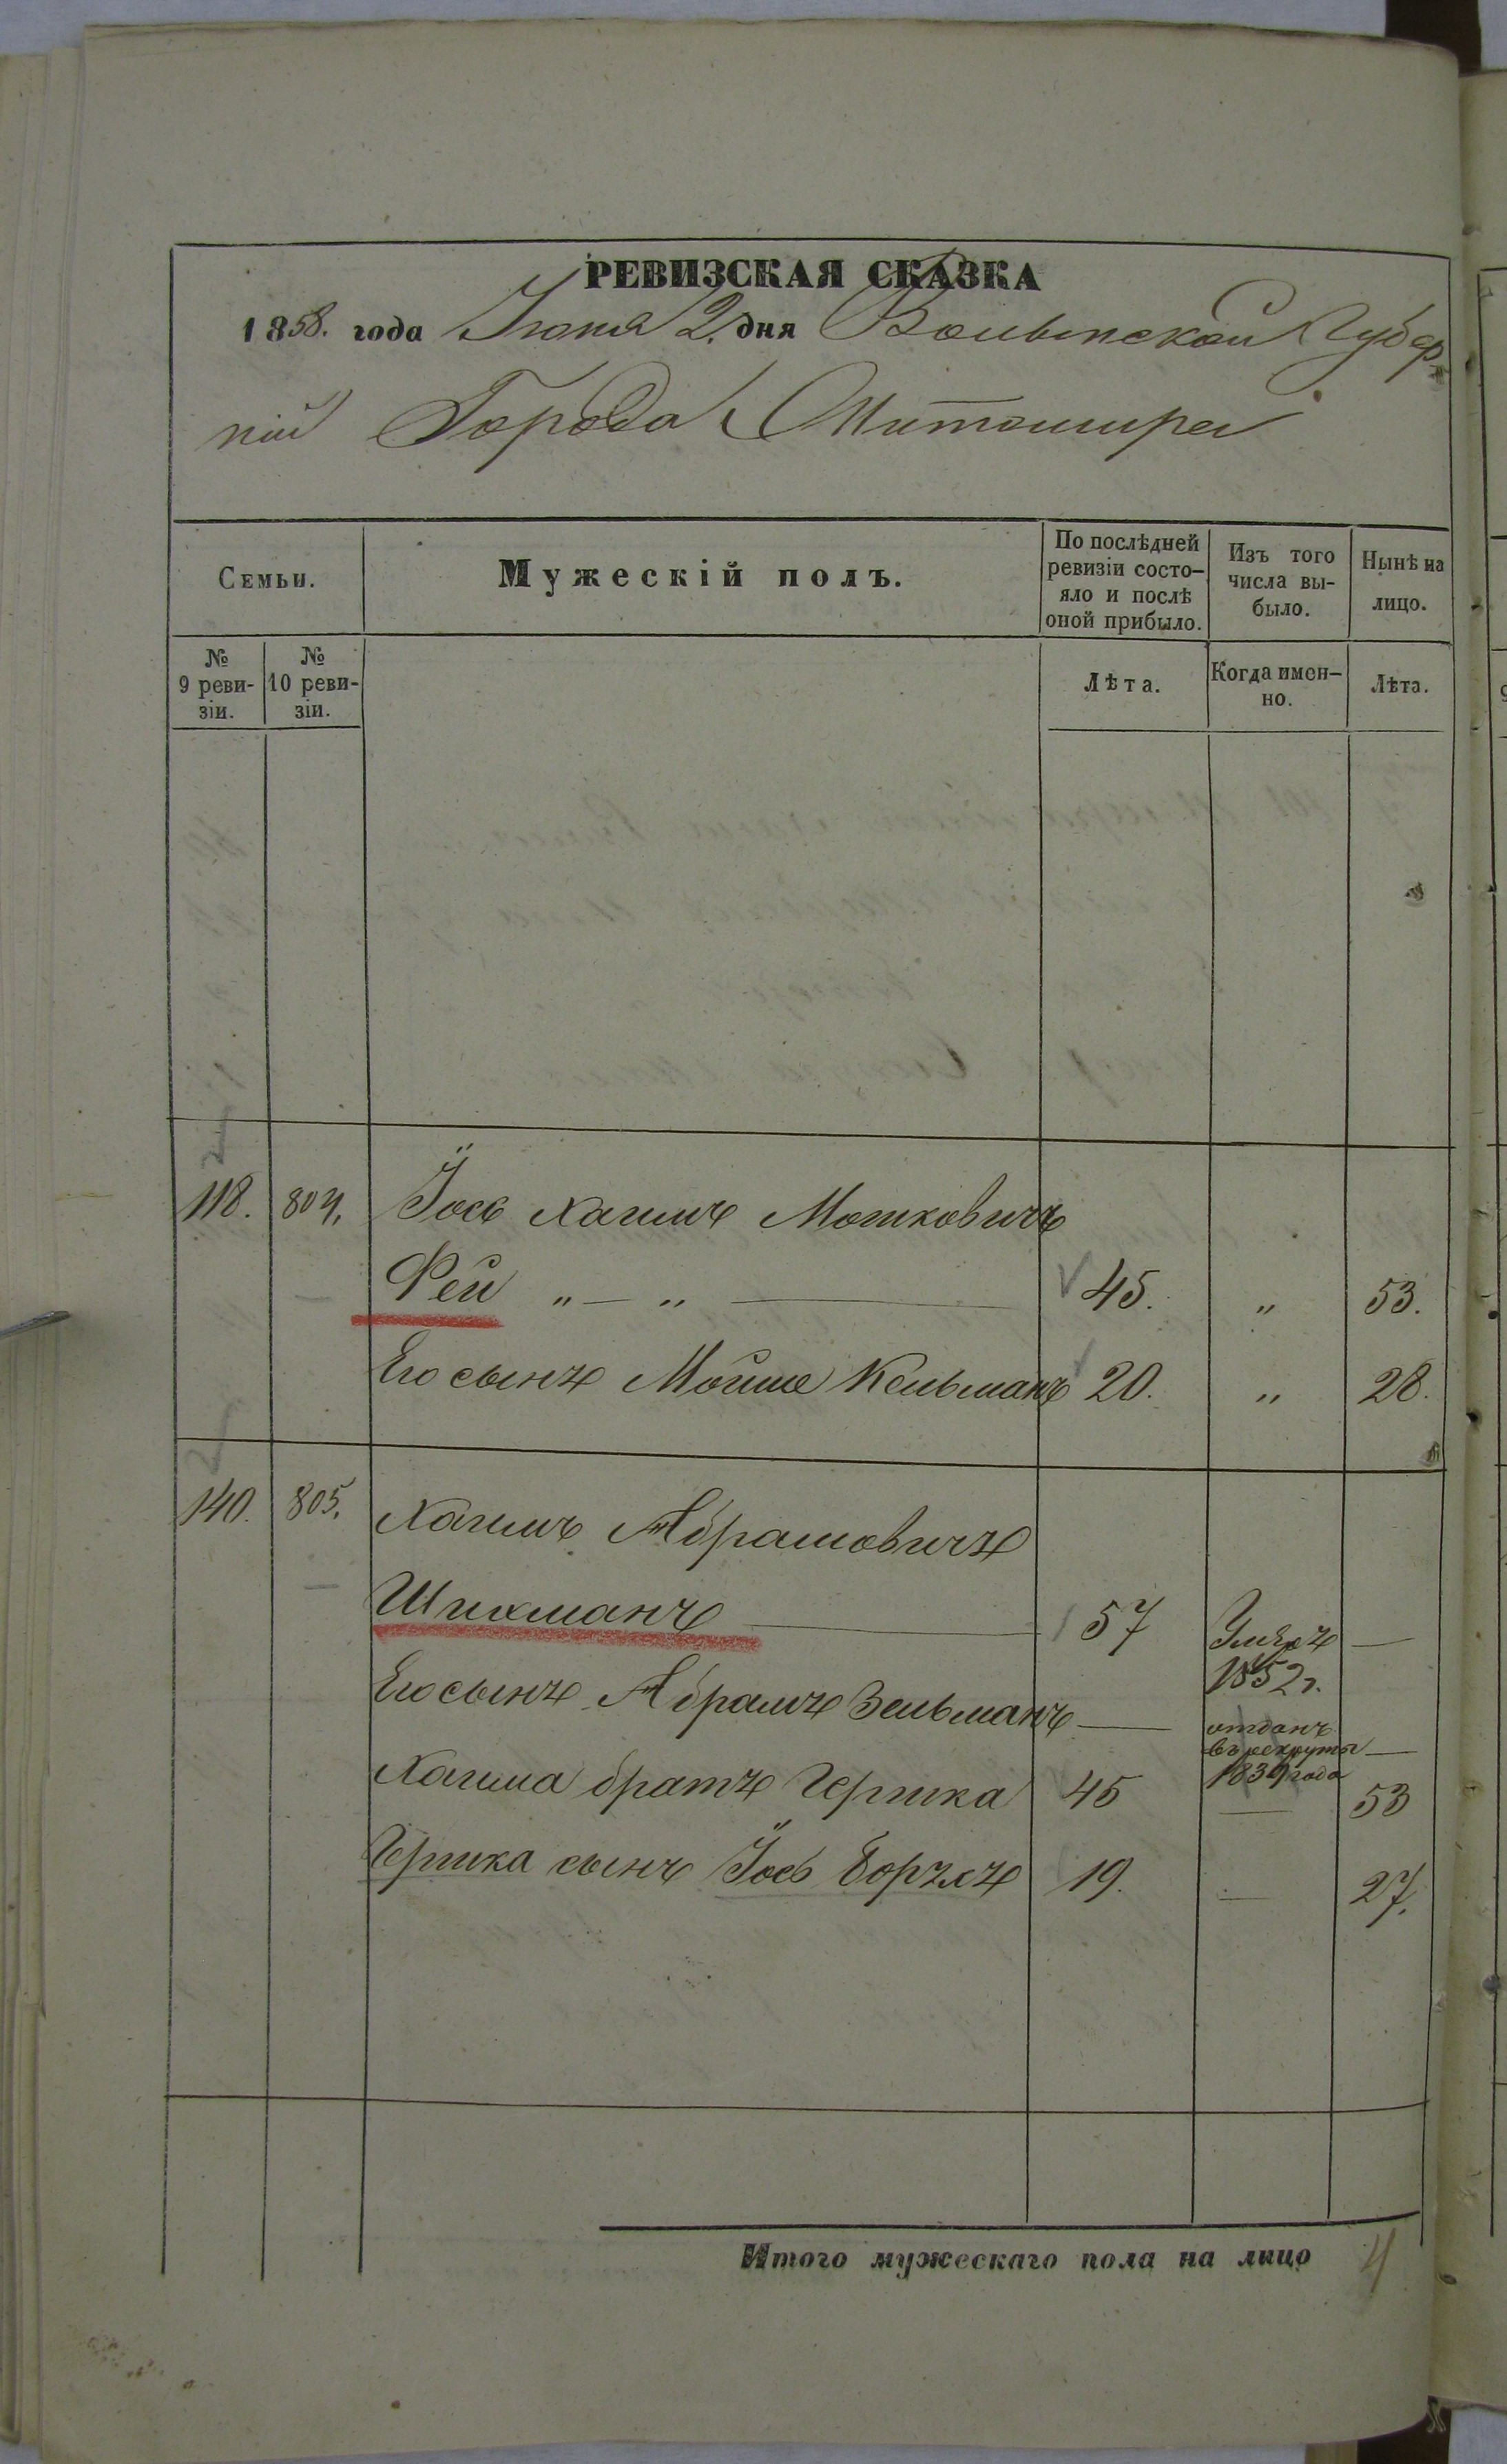 РЕВИЗСКАЯ СКАЗКА
1858. года Іюня 2. дня Волынской Губер-
ніи Города Житомира
Семьи.
Мужескій полъ.
По послѣдней ревизіи состо-яло и послѣ оной прибыло.
Изъ того числа вы-было.
Нынѣ на лицо.
№ 9 реви-зіи.
№ 10 реви-зіи.
Лѣта.
Когда имен-но.
Лѣта.
118. 804. Іось Хаимъ Мошковичъ
Фей „ — „ 45. „ 53.
Его сынъ Мойше Кельманъ 20. „ 28.
140. 805. Хаимъ Абрамовичъ
Шихманъ 57 Умеръ —
1852 г.
Его сынъ Абрамъ Зельманъ — отданъ
въ рекруты —
1839 года
Хаима братъ Гершка 45 — 53
Гершка сынъ Іось Борухъ 19. — 27.
Итого мужескаго пола на лицо 4